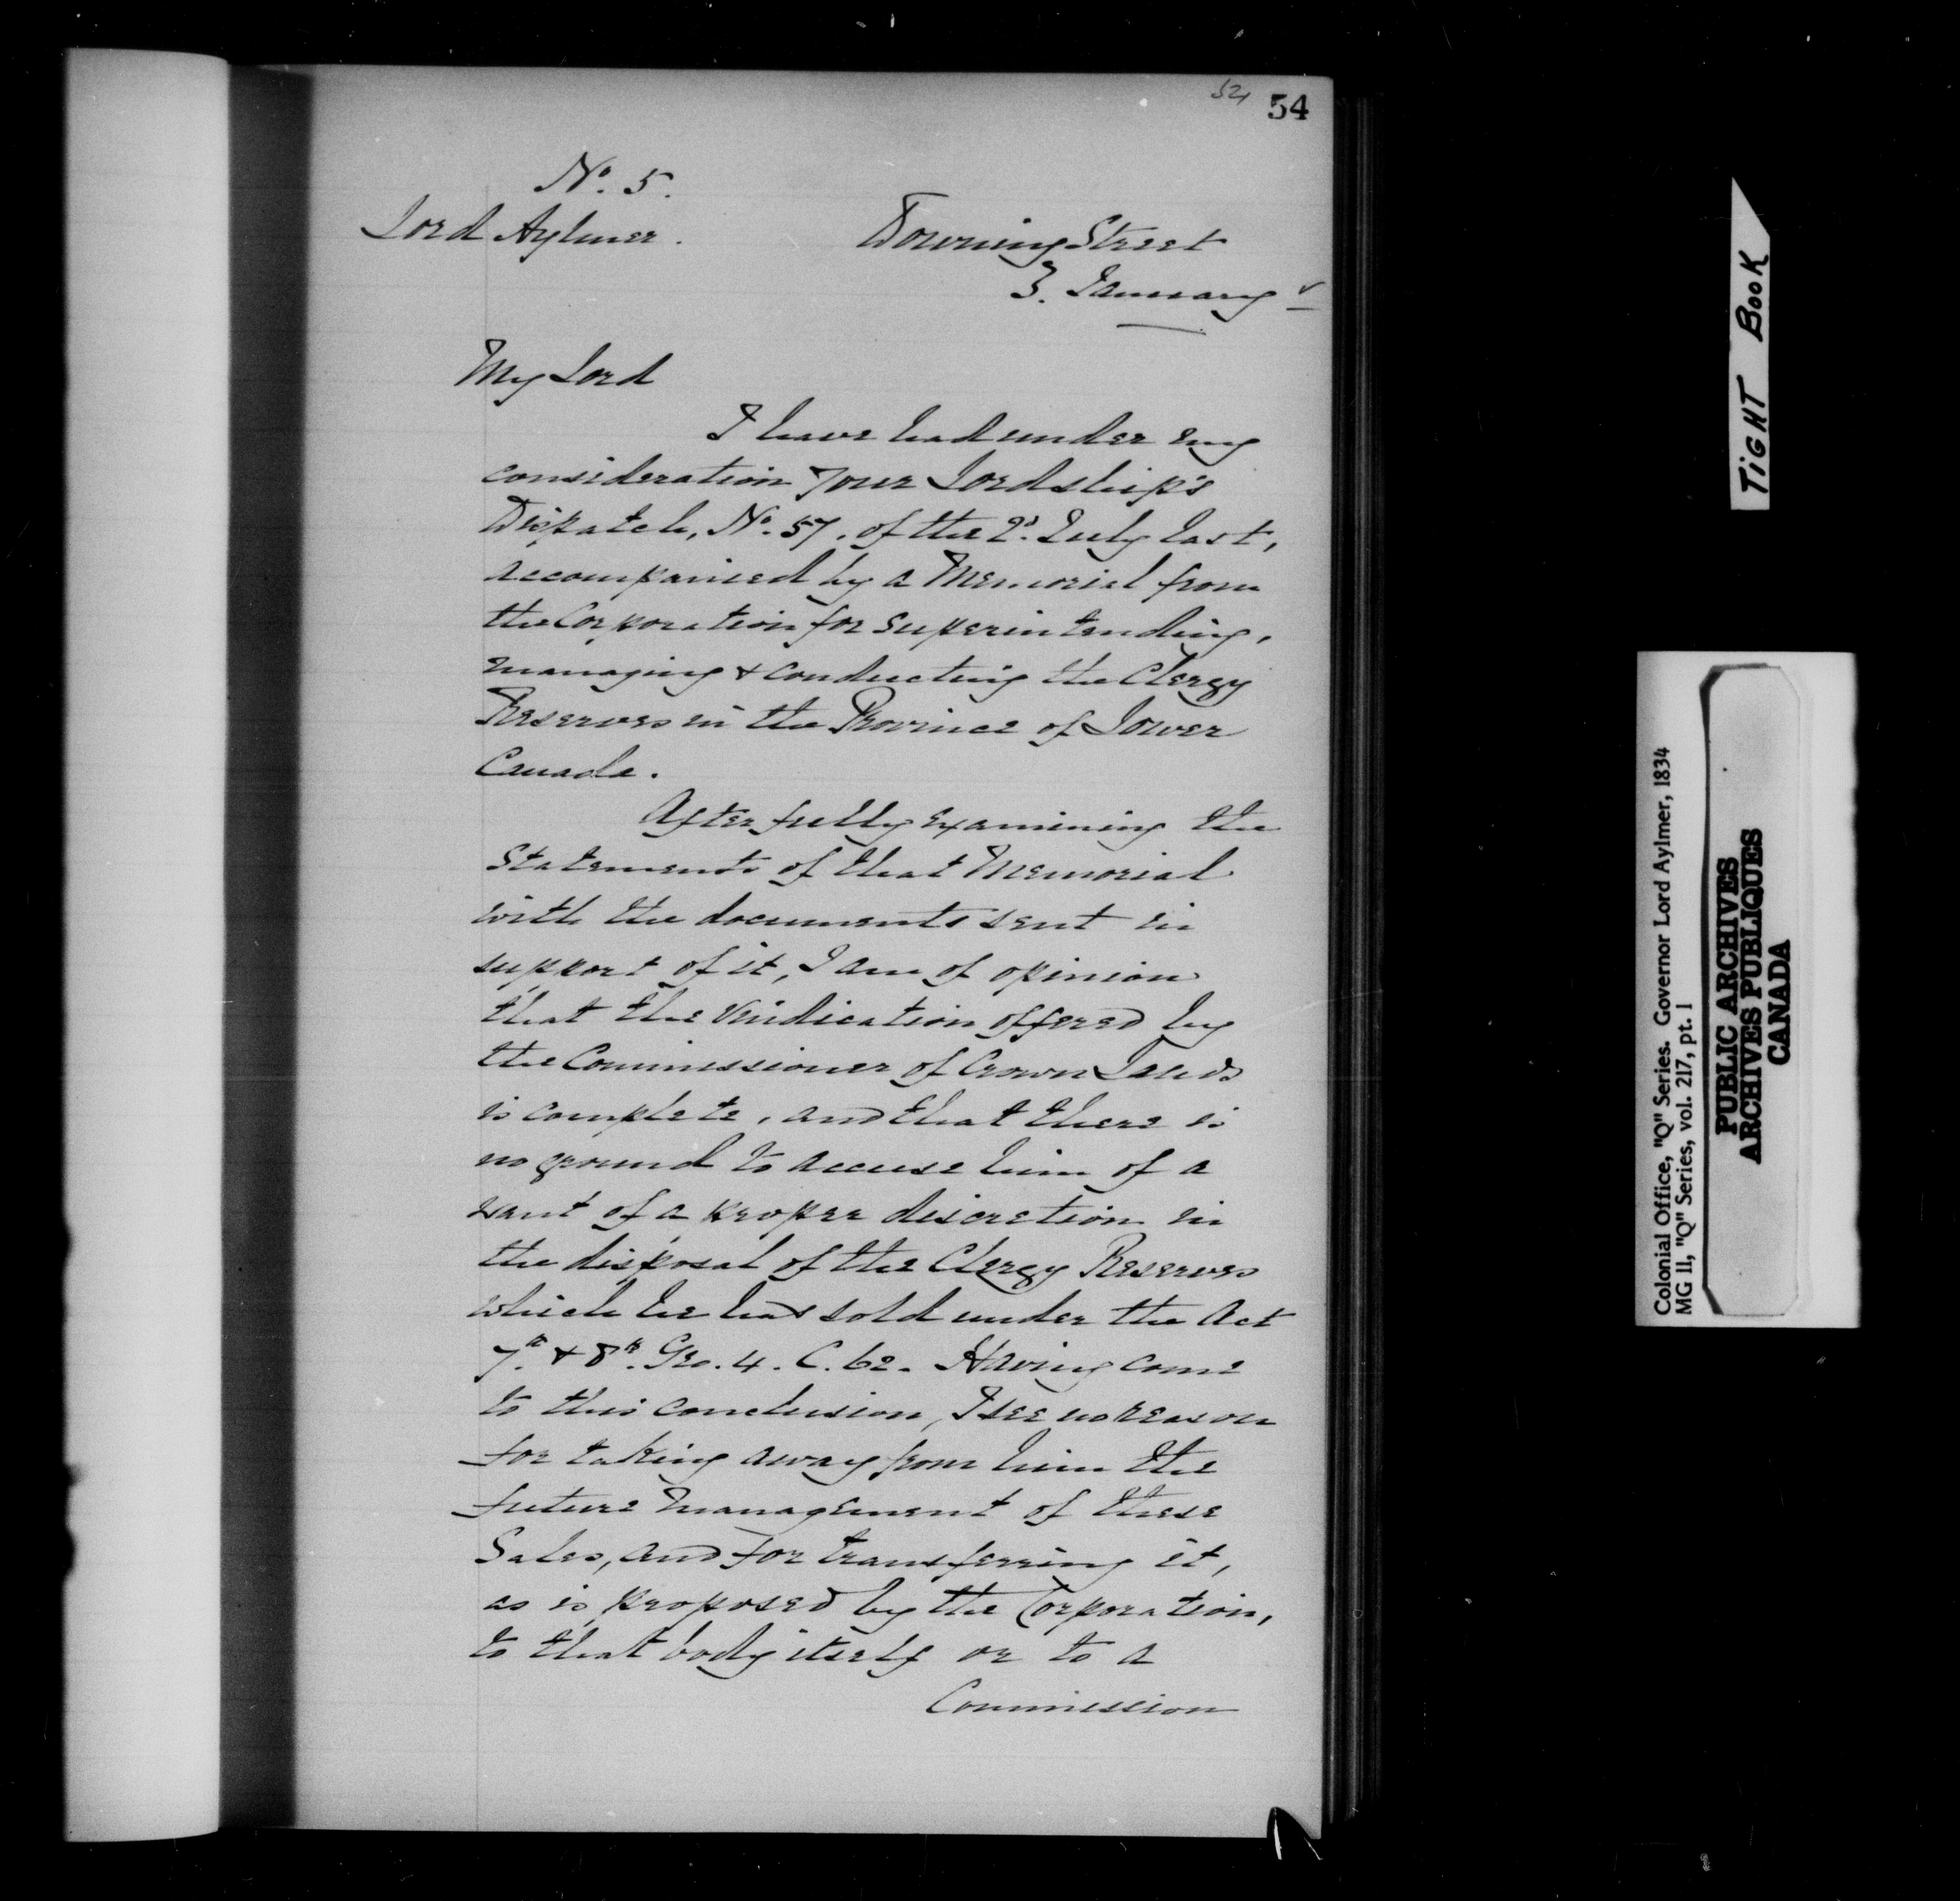 54
No. 5.
Lord Aylmer.
Downing Street
3. January
My Lord
I have had under my
consideration your Lordship's
Dispatch, No. 57. of the 2d. July last,
accompanied by a Memorial from
the Corporation for superintending,
managing & conducting the Clergy
Reserves in the Province of Lower
Canada.
After fully examining the
statements of that Memorial
with the documents sent in
support of it, I am of opinion
that the vindication offered by
the Commissioner of Crown Lands
is complete, and that there is
no ground to accuse him of a
want of a proper discretion in
the disposal of the Clergy Reserves
which he has sold under the Act
7th. & 8th. Geo. 4. C. 62. Having come
to this conclusion, I see no reason
for taking away from him the
future management of these
Sales, and for transferring it,
as is proposed by the Corporation,
to that body itself or to a
Commission
TIGHT BOOK
Colonial Office, "Q" Series. Governor Lord Aylmer, 1834
MG 11, "Q" Series, vol. 217, pt. 1
PUBLIC ARCHIVES
ARCHIVES PUBLIQUES
CANADA